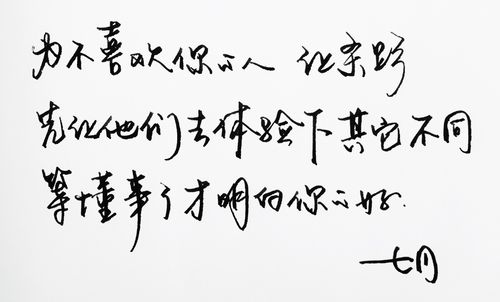 为不喜欢你的人 让条路
先让他们去体验下其它不同
等懂事了才明白你的好
七月